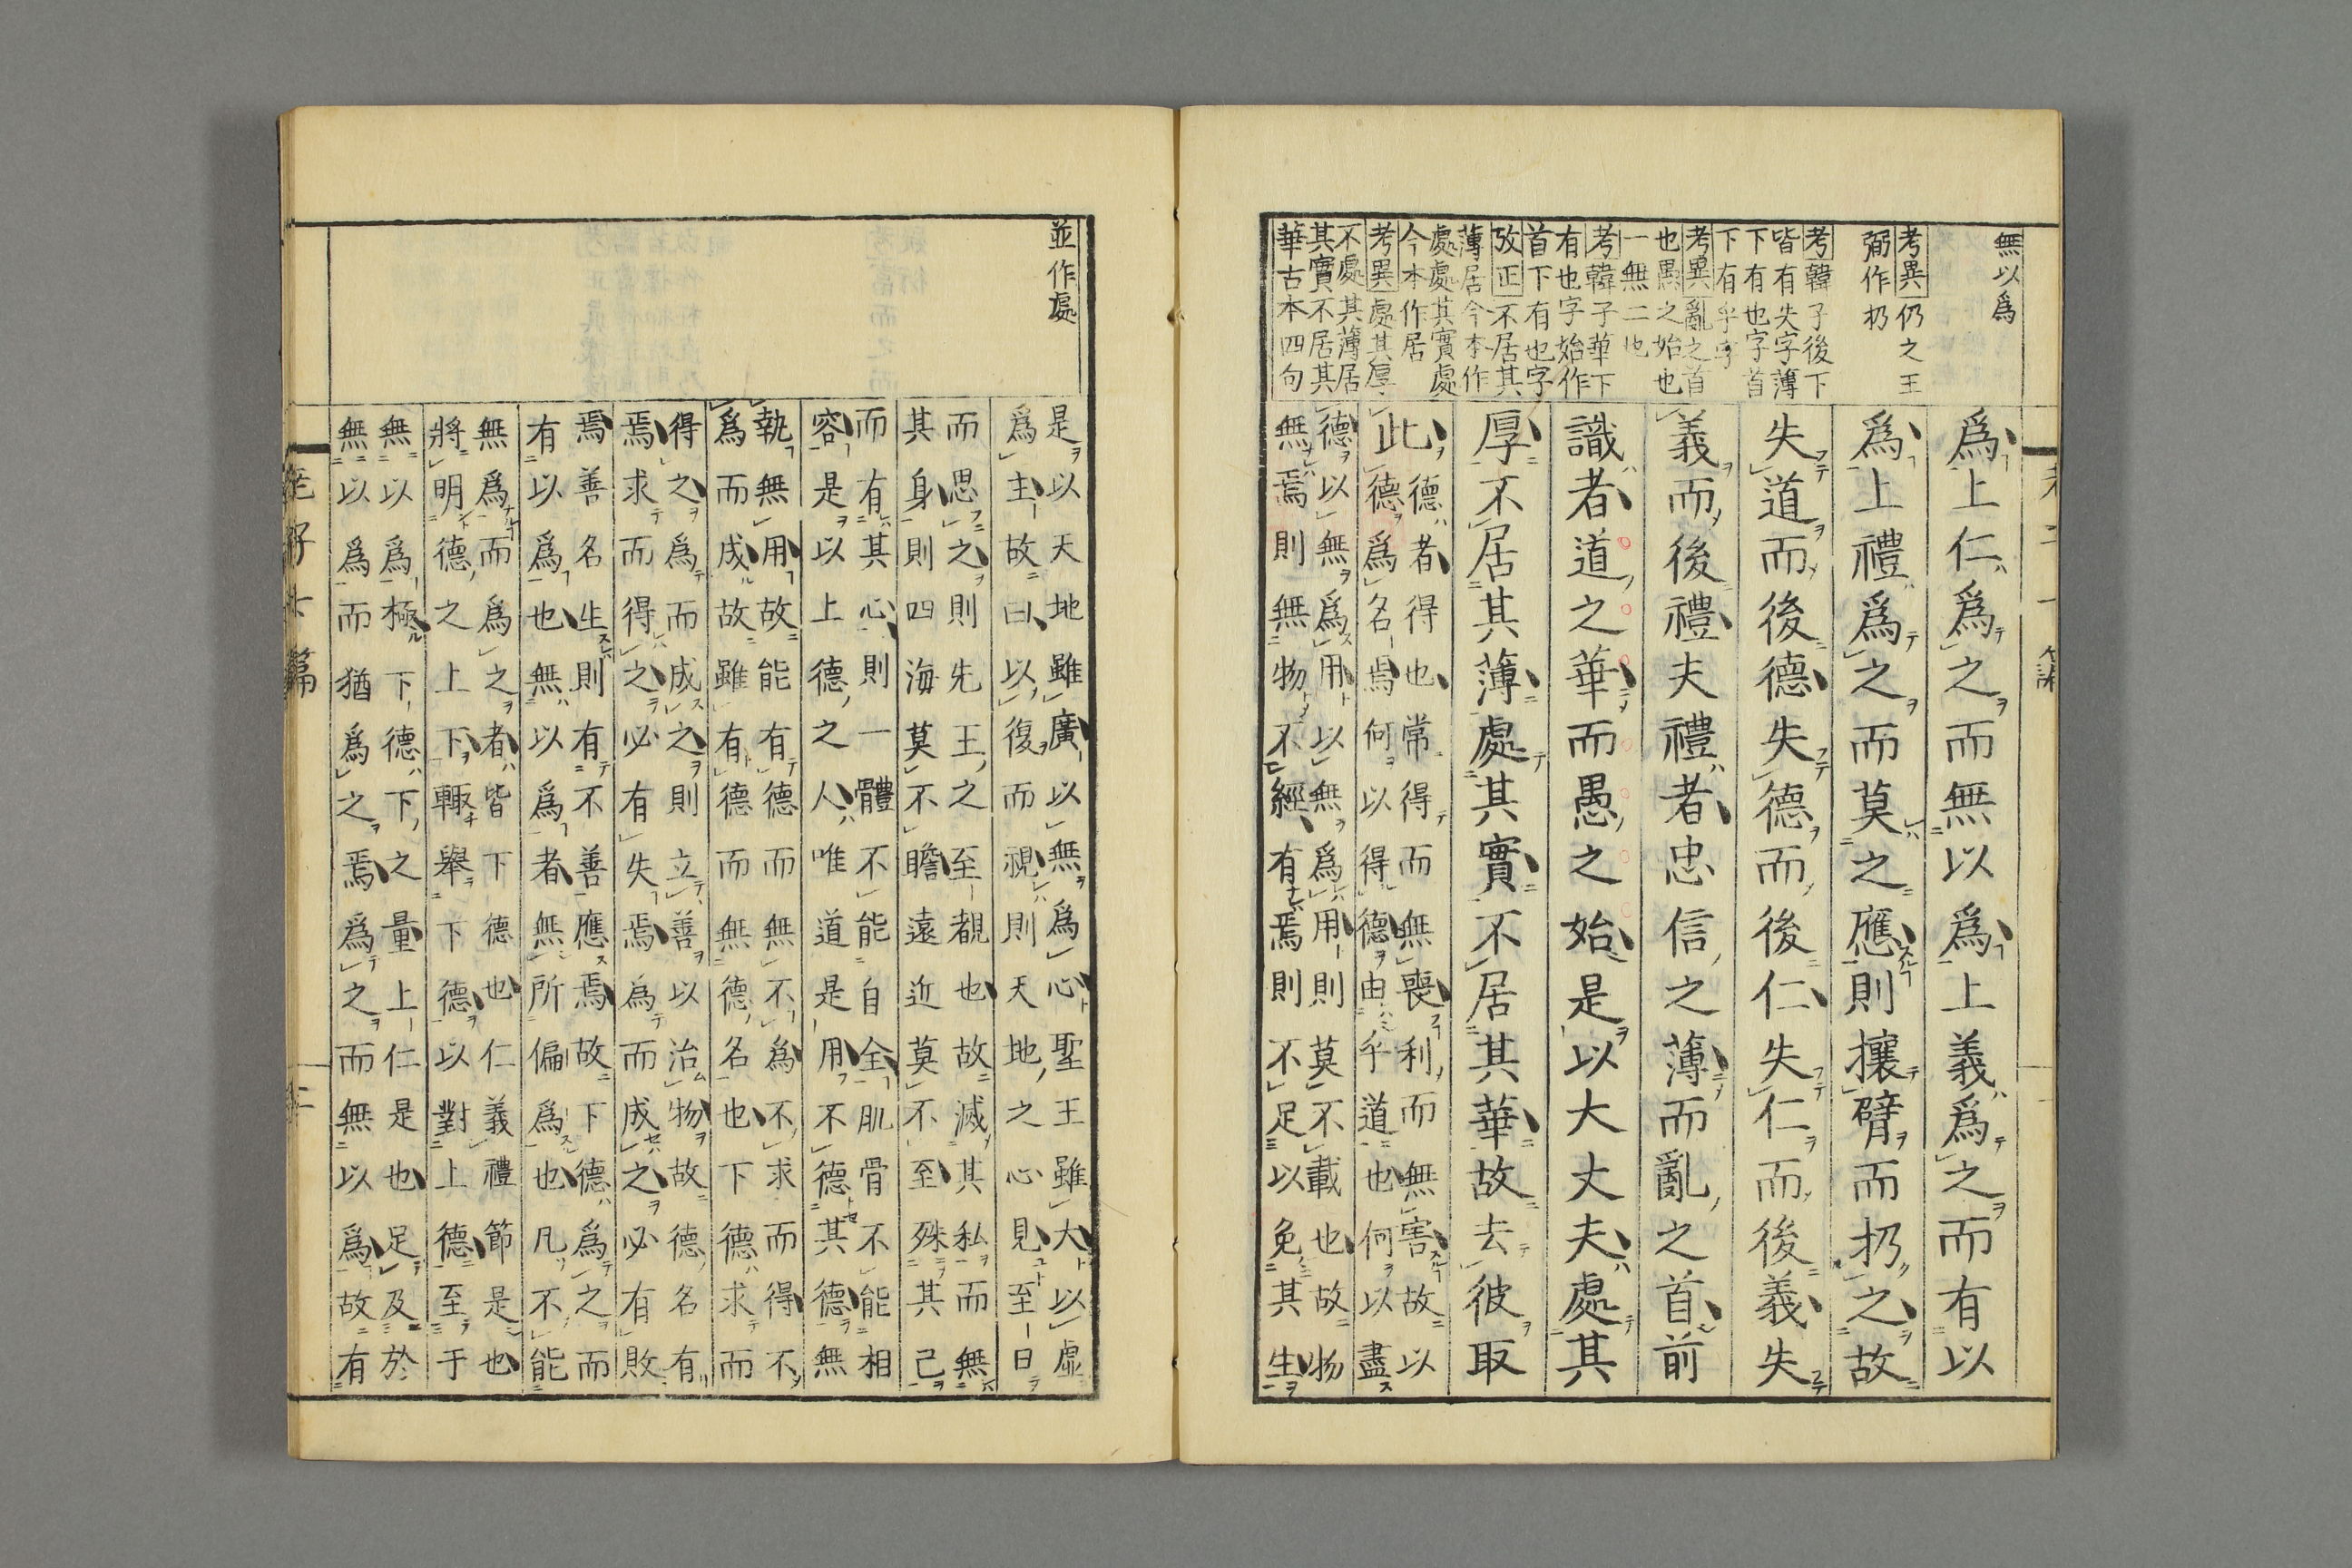 無以爲
考異仍之王
弼作扔
考韓子後下
皆有失字薄
下有也字首
下有乎字
考異亂之首
也愚之始也
一無二也
考韓子華下
有也字始作
首下有也字
攷正不居其
薄居今本作
處處其實處
今本作居
考異處其厚
不處其薄居
其實不居其
華古本四句
爲上仁爲之而無以爲上義爲之而有以
爲上禮爲之而莫之應則攘臂而扔之故
失道而後德失德而後仁失仁而後義失
義而後禮夫禮者忠信之薄而亂之首前
識者道之華而愚之始是以大丈夫處其
厚不居其薄處其實不居其華故去彼取
此
德者得也常得而無喪利而無害故以
德爲名焉何以得德由乎道也何以盡
德以無爲用以無爲用則莫不載也故物
無焉則無物不經有焉則不足以免其生
並作處
是以天地雖廣以無爲心聖王雖大以虛
爲主故曰以復而視則天地之心見至日
而思之則先王之至覩也故滅其私而無
其身則四海莫不瞻遠近莫不至殊其己
而有其心則一體不能自全肌骨不能相
容是以上德之人唯道是用不德其德無
執無用故能有德而無不爲不求而得不
爲而成故雖有德而無德名也下德求而
得之爲而成之則立善以治物故德名有
焉求而得之必有失焉爲而成之必有敗
焉善名生則有不善應焉故下德爲之而
有以爲也無以爲者無所偏爲也凡不能
無爲而爲之者皆下德也仁義禮節是也
將明德之上下輒舉下德以對上德至于
無以爲極下德下之量上仁是也足及於
無以爲而猶爲之焉爲之而無以爲故有